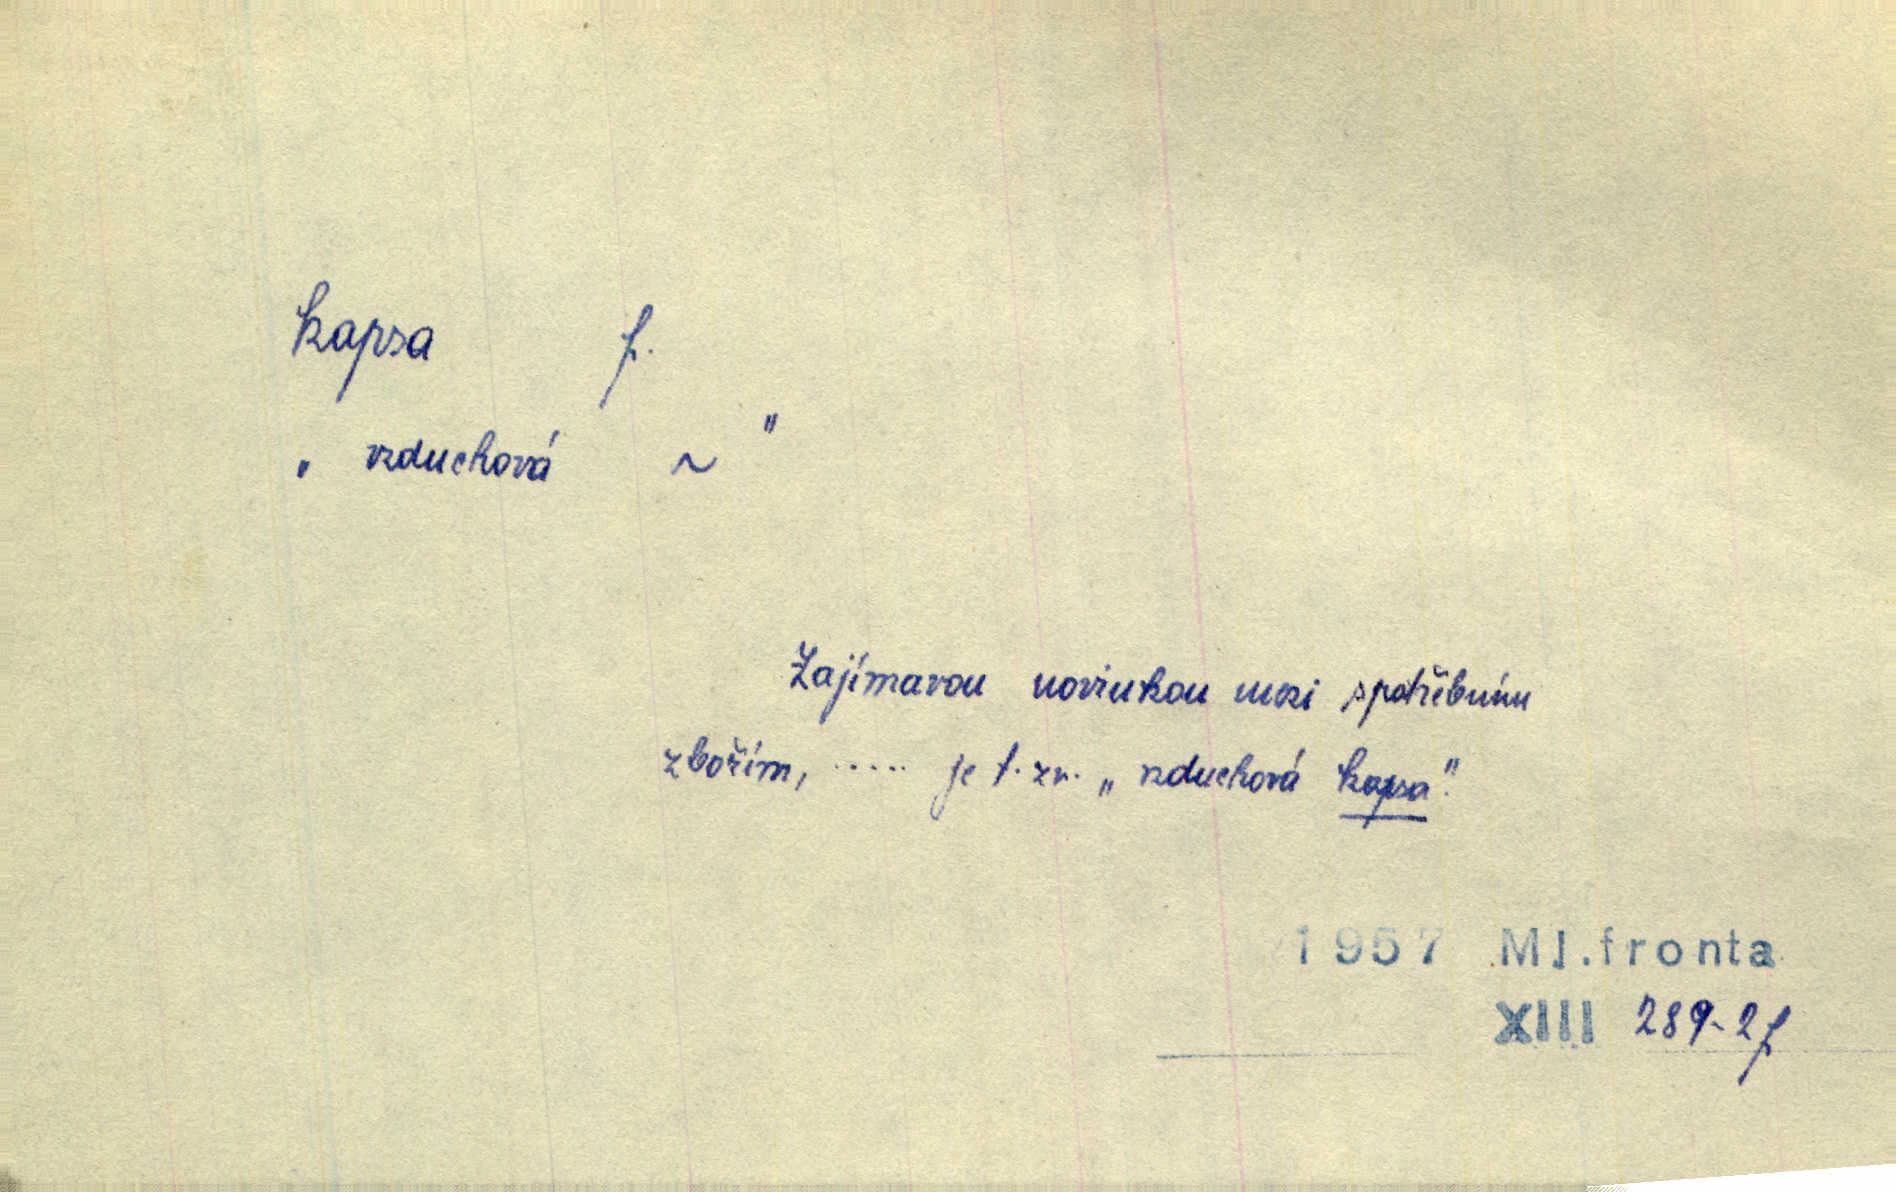 kapsa f.
„ vzduchová ~ "
Zajímavou novinkou mezi spotřebním
zbožím, ..... je t. zv. „ vzduchová kapsa".
1957 Ml.fronta
XIII 289-2f